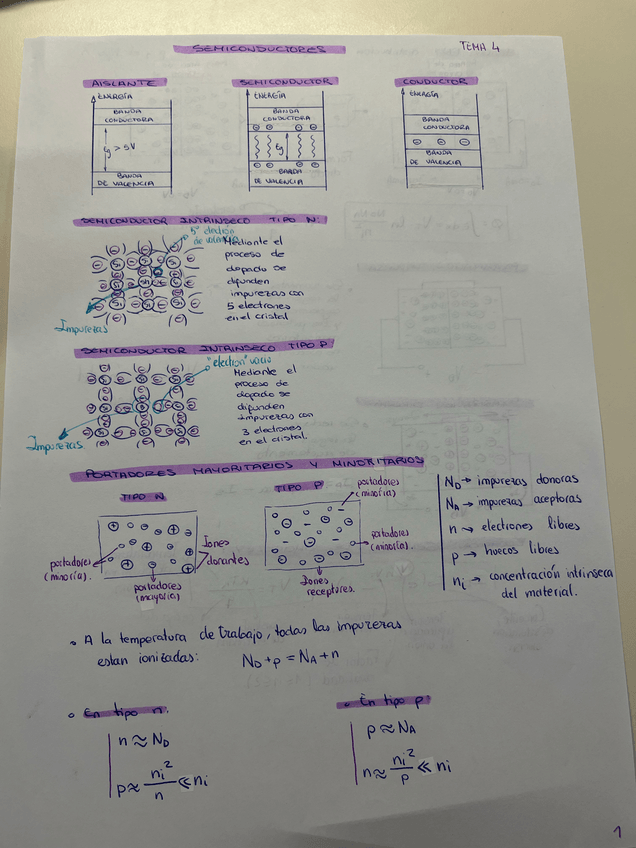 SEMICONDUCTORES
TEMA 4
AISLANTE
ENERGÍA
BANDA
CONDUCTORA
Eg > 5V
BANDA
DE VALENCIA
SEMICONDUCTOR
ENERGÍA
BANDA
CONDUCTORA
Eg
BANDA
DE VALENCIA
CONDUCTOR
ENERGÍA
BANDA
CONDUCTORA
BANDA
DE VALENCIA
SEMICONDUCTOR INTRINSECO TIPO N:
5º electrón
de valencia
Impurezas
Mediante el
proceso de
dopado se
difunden
impurezas con
5 electrones
en el cristal
SEMICONDUCTOR INTRINSECO TIPO P
"electrón" vacío
Impurezas
Mediante el
proceso de
dopado se
difunden
impurezas con
3 electrones
en el cristal.
PORTADORES MAYORITARIOS Y MINORITARIOS
TIPO N
portadores
(minoría).
Iones
donantes
portadores
(mayoría)
TIPO P
portadores
(minoría)
portadores
(minoría).
Iones
receptores.
ND → impurezas donoras
NA → impurezas aceptoras
n → electrones libres
p → huecos libres
ni → concentración intrínseca
del material.
• A la temperatura de trabajo, todas las impurezas
estan ionizadas: ND + p = NA + n
• En tipo n:
n ≈ ND
p ≈ ni²/n ≪ ni
• En tipo p:
p ≈ NA
n ≈ ni²/p ≪ ni
1